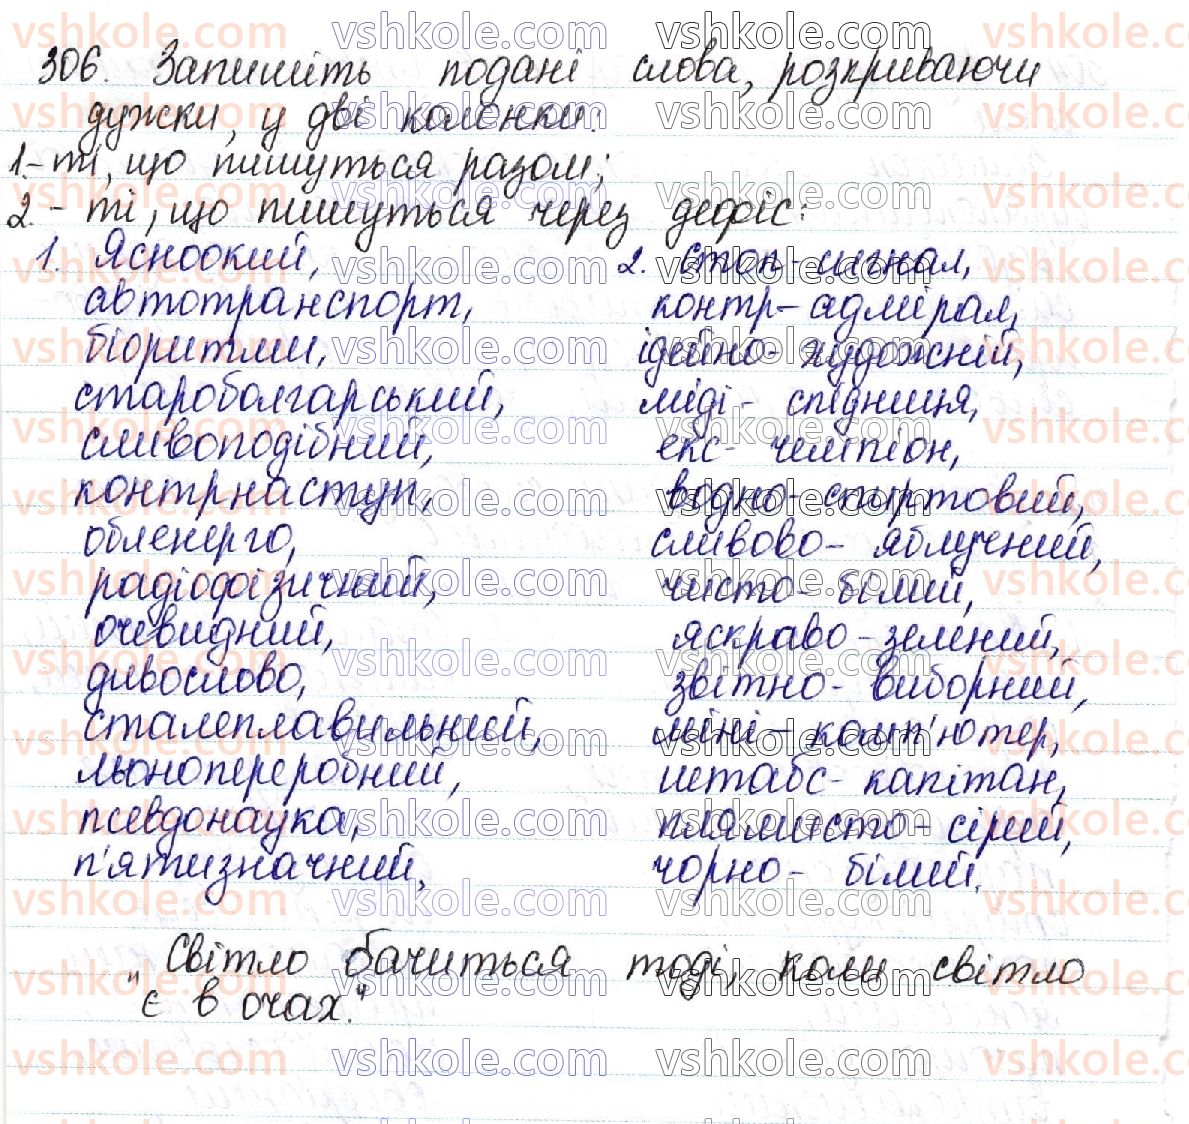 306. Запишіть подані слова, розкриваючи
дужки, у дві колонки:
1.- ті, що пишуться разом;
2.- ті, що пишуться через дефіс:
1. Ясноокий,
автотранспорт,
біоритми,
староболгарський,
сливоподібний,
контрнаступ,
обленерго,
радіофізичний,
очевидний,
дивослово,
сталеплавильний,
льонопереробний,
псевдонаука,
п'ятизначний.
2. стоп-сигнал,
контр-адмірал,
ідейно-художній,
міді-спідниця,
екс-чемпіон,
водно-спиртовий,
сливово-яблучний,
чисто-білий,
яскраво-зелений,
звітно-виборний,
міні-комп'ютер,
штабс-капітан,
плямисто-сірий,
чорно-білий.
"Світло бачиться тоді, коли світло
є в очах."
vshkole.com